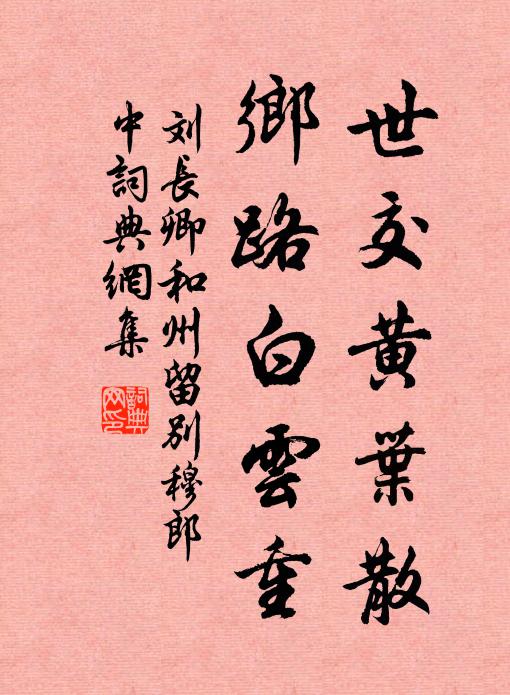 世交黄葉散
鄉路白雲重
刘長卿和州留别穆郎
中詞典網集
詞典
网印